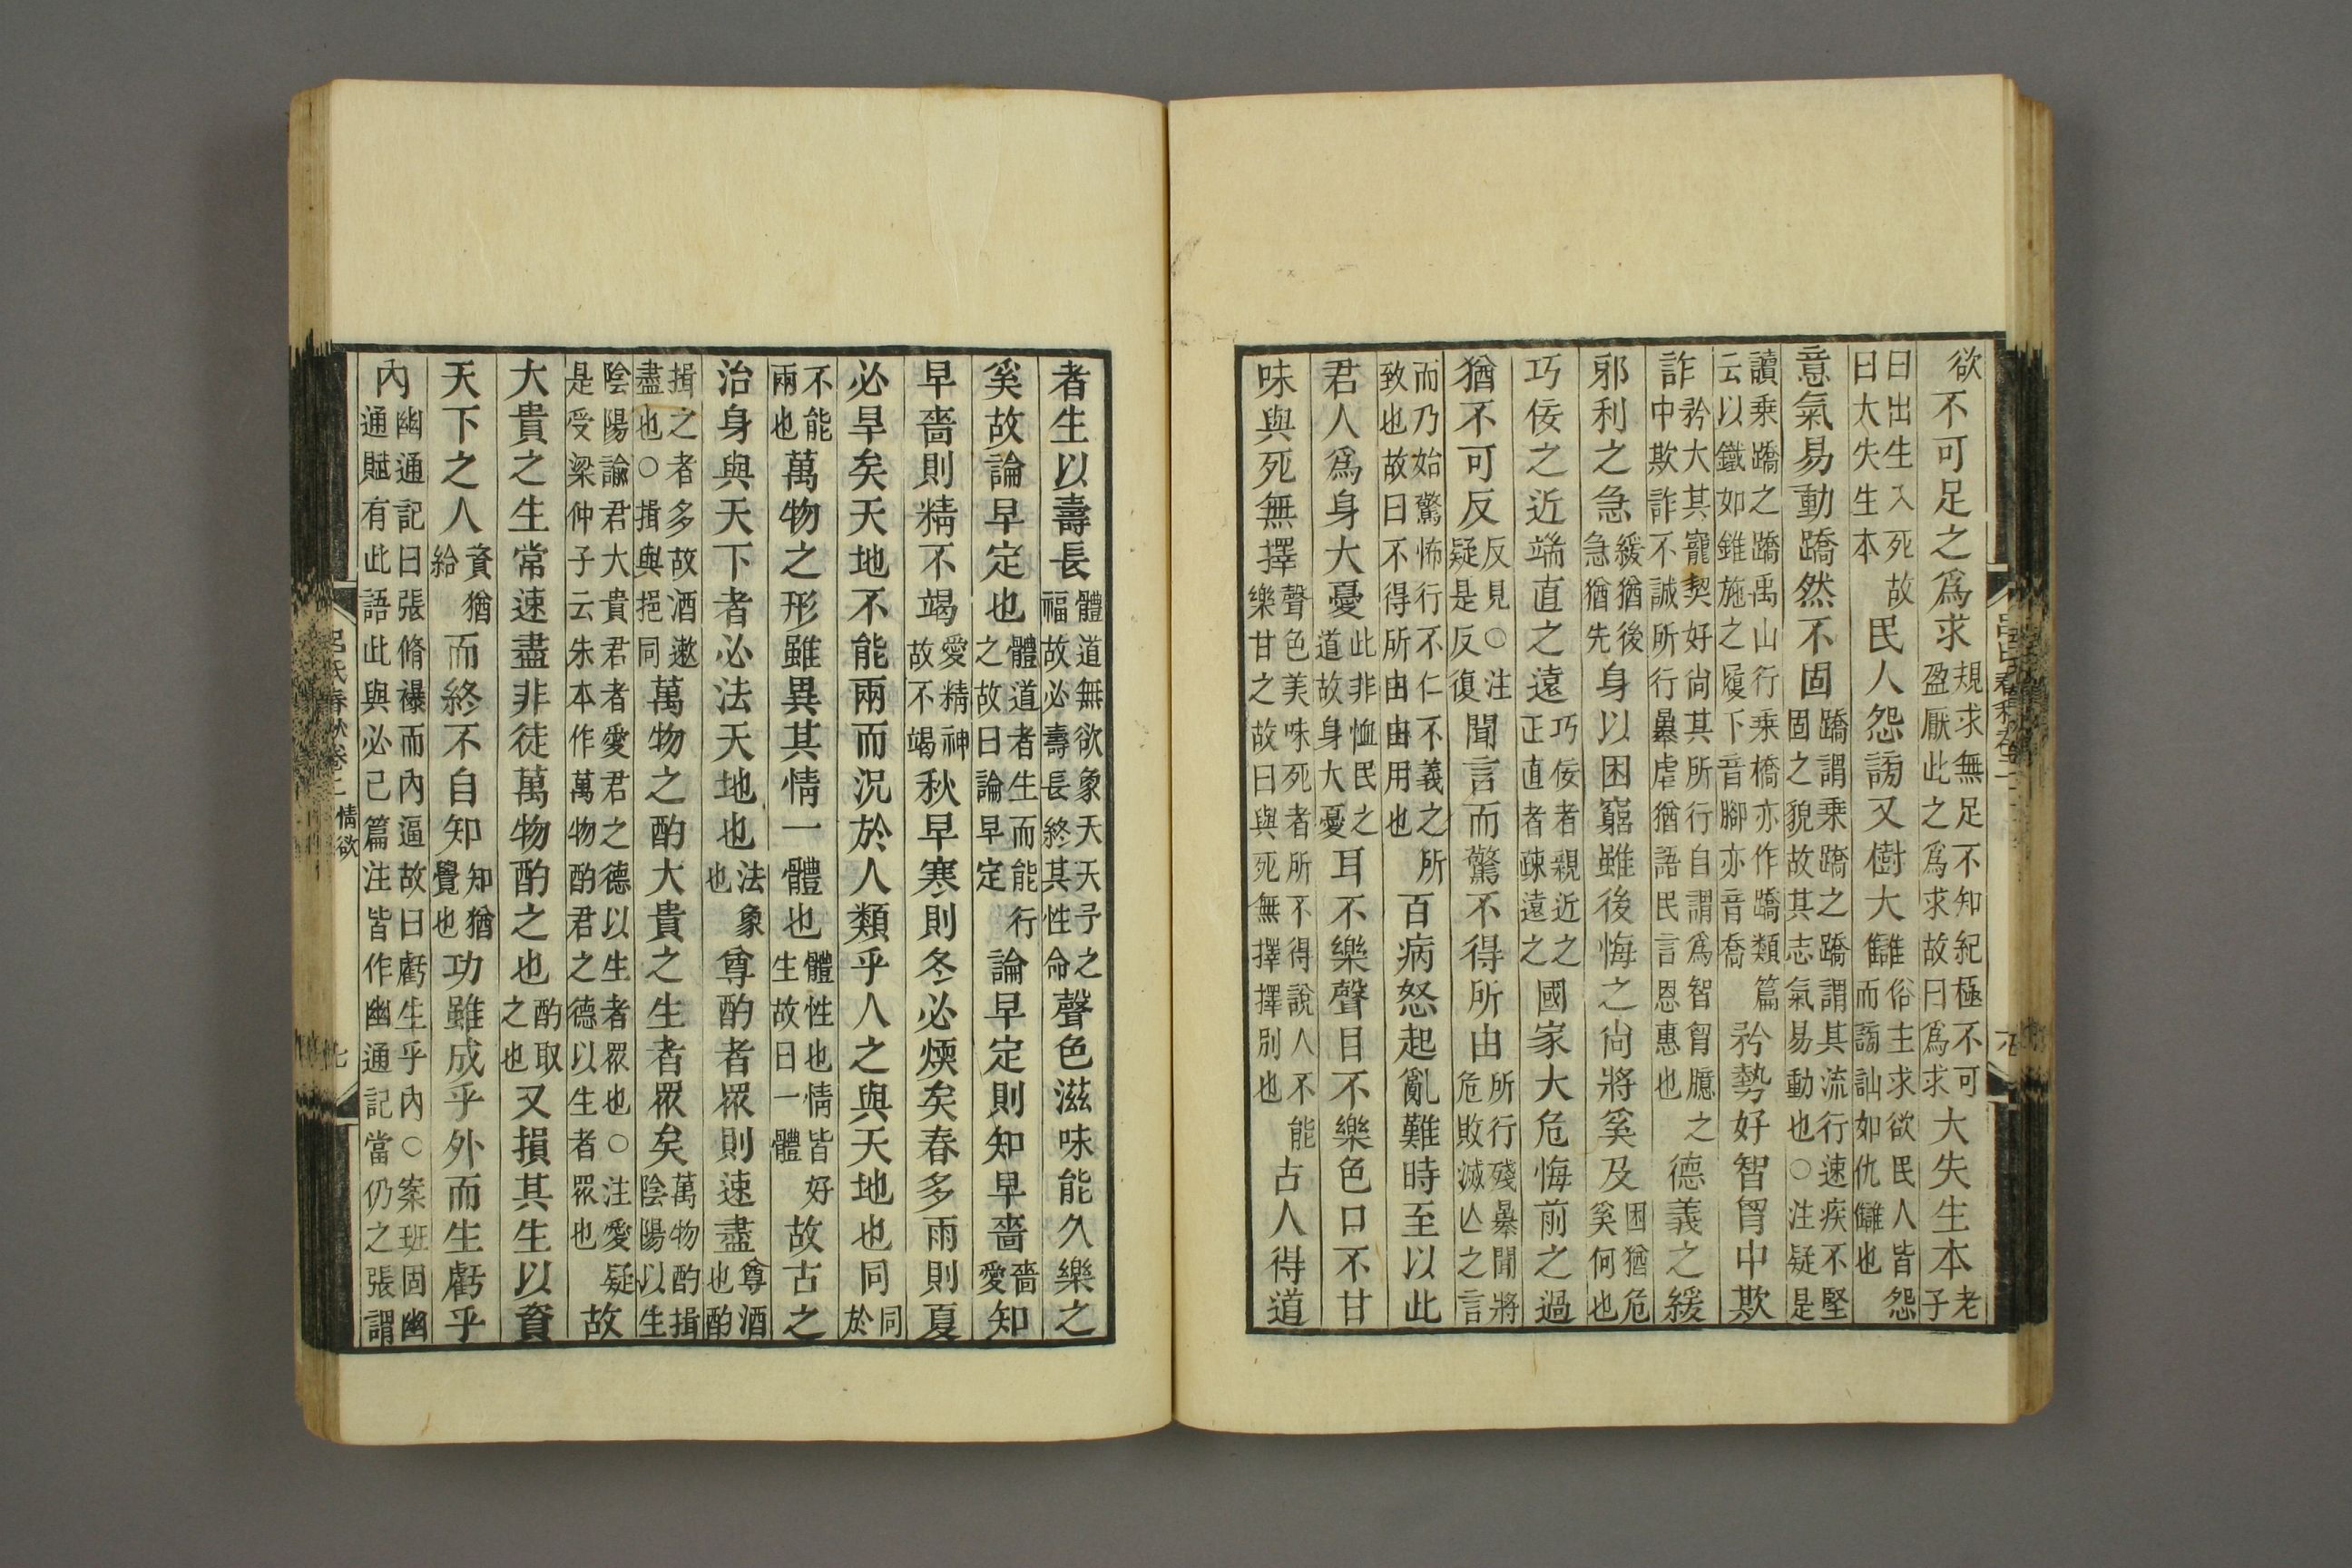 欲不可足之爲求規求無足不知紀極不可盈厭此之爲求故曰爲求大失生本老子
曰出生入死故曰大失生本民人怨謗又樹大讎俗主求欲民人皆怨而謗訕如仇讎也
意氣易動蹻然不固蹻謂乘蹻之蹻謂其流行速疾不堅固之貌故其志氣易動也○注疑是
讀乘蹻之蹻禹山行乘橋亦作蹻類篇云以鐵如錐施之履下音腳亦音喬矜勢好智胷中欺
詐矜大其寵契好尚其所行自謂爲智胷臆之中欺詐不誠所行暴虐猶語民言恩惠也德義之緩
邪利之急緩猶後急猶先身以困窮雖後悔之尚將奚及困猶危奚何也
巧佞之近端直之遠巧佞者親近之正直者疎遠之國家大危悔前之過
猶不可反反見○注疑是反復聞言而驚不得所由所行殘暴聞將危敗滅亾之言
而乃始驚怖行不仁不義之所致也故曰不得所由由用也百病怒起亂難時至以此
君人爲身大憂此非恤民之道故身大憂耳不樂聲目不樂色口不甘
味與死無擇聲色美味死者所不得說人不能樂甘之故曰與死無擇擇別也古人得道
者生以壽長體道無欲象天天予之福故必壽長終其性命聲色滋味能久樂之
奚故論早定也體道者生而能行之故曰論早定論早定則知早嗇嗇愛知
早嗇則精不竭愛精神故不竭秋早寒則冬必煗矣春多雨則夏
必旱矣天地不能兩而況於人類乎人之與天地也同同於
不能兩也萬物之形雖異其情一體也體性也情皆好生故曰一體故古之
治身與天下者必法天地也法象也尊酌者眾則速盡尊酒也酌
揖之者多故酒遬盡也○揖與挹同萬物之酌大貴之生者眾矣萬物酌揖陰陽以生
陰陽諭君大貴君者愛君之德以生者眾也○注愛疑是受梁仲子云朱本作萬物酌君之德以生者眾也故
大貴之生常速盡非徒萬物酌之也酌取之也又損其生以資
天下之人資猶給而終不自知知猶覺也功雖成乎外而生虧乎
內幽通記曰張脩襮而內逼故曰虧生乎內○案班固幽通賦有此語此與必己篇注皆作幽通記當仍之張謂
呂氏春秋卷二 情欲 七